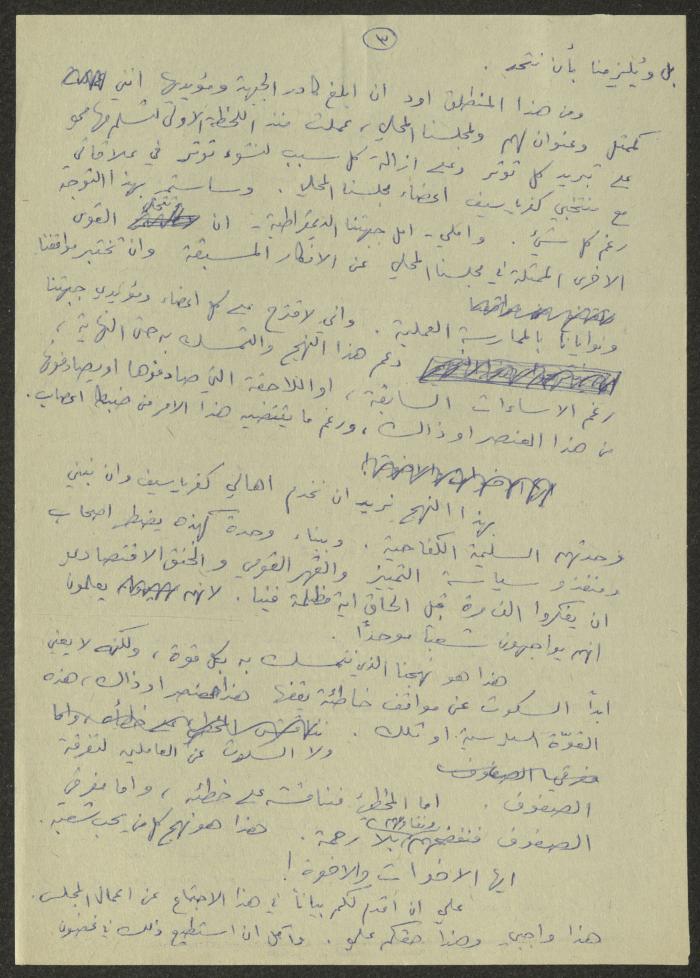 ٣
بل ويُلزمنا بأن نتحد .
ومن هذا المنطلق اود ان ابلغ كادر الجبهة ومؤيديها انني
كممثل وعنوان لهم ولمجلسنا المحلي ، عملت منذ اللحظة الاولى
على تبريد كل توتر وعلى ازالة كل سبب لنشوء توتر في علاقاتي
مع منتخبي كفرياسيف اعضاء مجلسنا المحلي . وسأستمر بهذا التوجه
رغم كل شيء . واملي - امل جبهتنا الديمقراطية - ان تتخلى القوى
الاخرى الممثلة في مجلسنا المحلي عن الافكار المسبقة وان تختبر مواقفنا
ونوايانا بالممارسة العملية . واني لاقترح على كل اعضاء ومؤيدي جبهتنا
دعم هذا النهج والتمسك به حتى النهاية ،
رغم الاساءات السابقة ، او اللاحقة التي صادفوها او يصادفونها
من هذا العنصر او ذاك ، ورغم ما يقتضيه هذا الامر من ضبط اعصاب .
بهذا النهج نريد ان نخدم اهالي كفرياسيف وان نبني
وحدتهم السليمة الكفاحية . وبناء وحدة كهذه يضطر اصحاب
ومنفذو سياسة التمييز والقهر القومي والخنق الاقتصادي
ان يفكروا الف مرة قبل الحاق اية مظلمة فينا . لانهم يعلمون
انهم يواجهون شعباً موحداً .
هذا هو نهجنا الذي نتمسك به بكل قوة ، ولكنه لا يعني
ابداً السكوت عن مواقف خاطئة يقفها هذا العنصر او ذاك ، هذه
القوّة السياسية او تلك .
ولا السكوت عن العاملين لتفرقة
الصفوف . اما المخطئ فنناقشه على خطئه ، واما مفرقي
الصفوف فنفضحهم بلا رحمة . هذا هو نهج كل من يحب شعبه .
ايها الاخوات والاخوة !
علي ان اقدم لكم بياناً في هذا الاجتماع عن اعمال المجلس .
هذا واجبي وهذا حقكم علي . وآمل ان استطيع ذلك في غضون